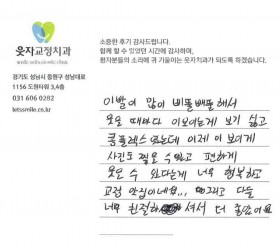 웃자교정치과
경기도 성남시 중원구 성남대로
1156 도원타워 3,4층
031 606 0282
letssmile.co.kr
소중한 후기 감사드립니다.
함께 할 수 있었던 시간에 감사하며,
환자분들의 소리에 귀 기울이는 웃자치과가 되도록 하겠습니다.
이빨이 많이 삐뚤빼뚤해서
웃을 때마다 이 보이는게 보기 싫고
콤플렉스 였는데 이제 이 보이게
사진도 찍을 수 있고 편하게
웃을 수 있다는게 너무 행복하고
교정 맛집이네요... 그리고 다들
너무 친절하셔서 더 좋았어요